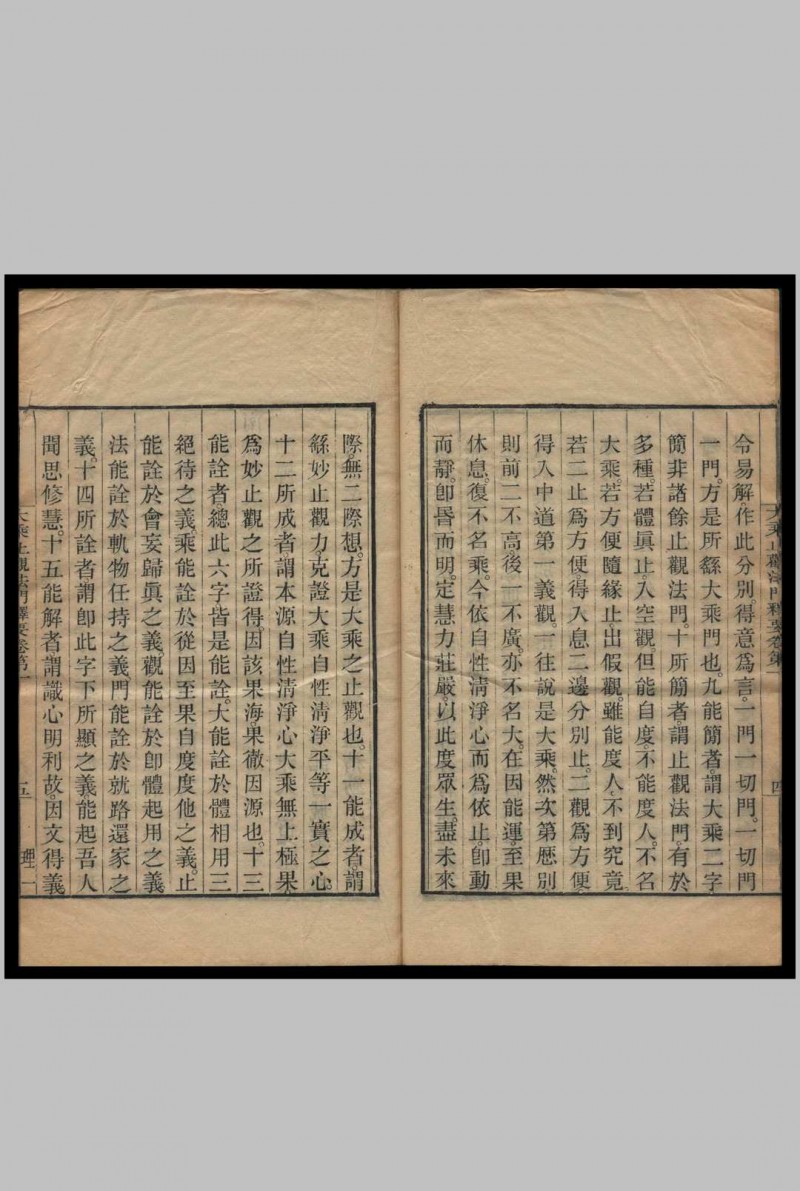 大乘止觀法門釋要卷第一
四
令易解作此分別得意爲言。一門一切門。一切門
一門。方是所繇大乘門也。九能簡者。謂大乘二字
簡非諸餘止觀法門。十所簡者。謂止觀法門。有於
多種。若體眞止。入空觀。但能自度。不能度人。不名
大乘。若方便隨緣止。出假觀。雖能度人。不到究竟。
若二止爲方便。得入息二邊分別止。二觀爲方便。
得入中道第一義觀。一往說是大乘。然次第歷別。
則前二不高。後一不廣。亦不名大。在因能運。至果
休息。復不名乘。今依自性淸淨心而爲依止。卽動
而靜。卽昏而明。定慧力莊嚴。以此度眾生。盡未來
際。無二際想。方是大乘之止觀也。十一能成者。謂
繇妙止觀力。克證大乘自性淸淨平等一實之心
十二所成者。謂本源自性淸淨心。大乘無上極果
爲妙止觀之所證得。因該果海。果徹因源也。十三
能詮者。總此六字。皆是能詮。大能詮於體相用三
絕待之義。乘能詮於從因至果自度度他之義。止
能詮於會妄歸眞之義。觀能詮於卽體起用之義
法能詮於軌物任持之義。門能詮於就路還家之
義。十四所詮者。謂卽此字下所顯之義。能起吾人
聞思修慧。十五能解者。謂識心明利故。因文得義
大乘止觀法門釋要卷第一
五
理一